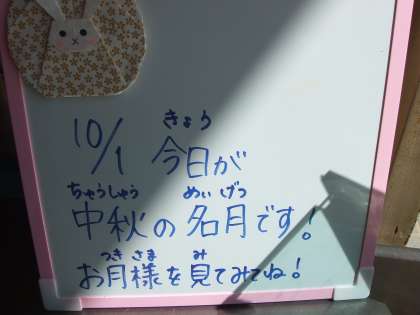 きょう
10/1 今日が
ちゅうしゅう めいげつ
中秋の名月です!
つきさま み
お月様を見てみてね!